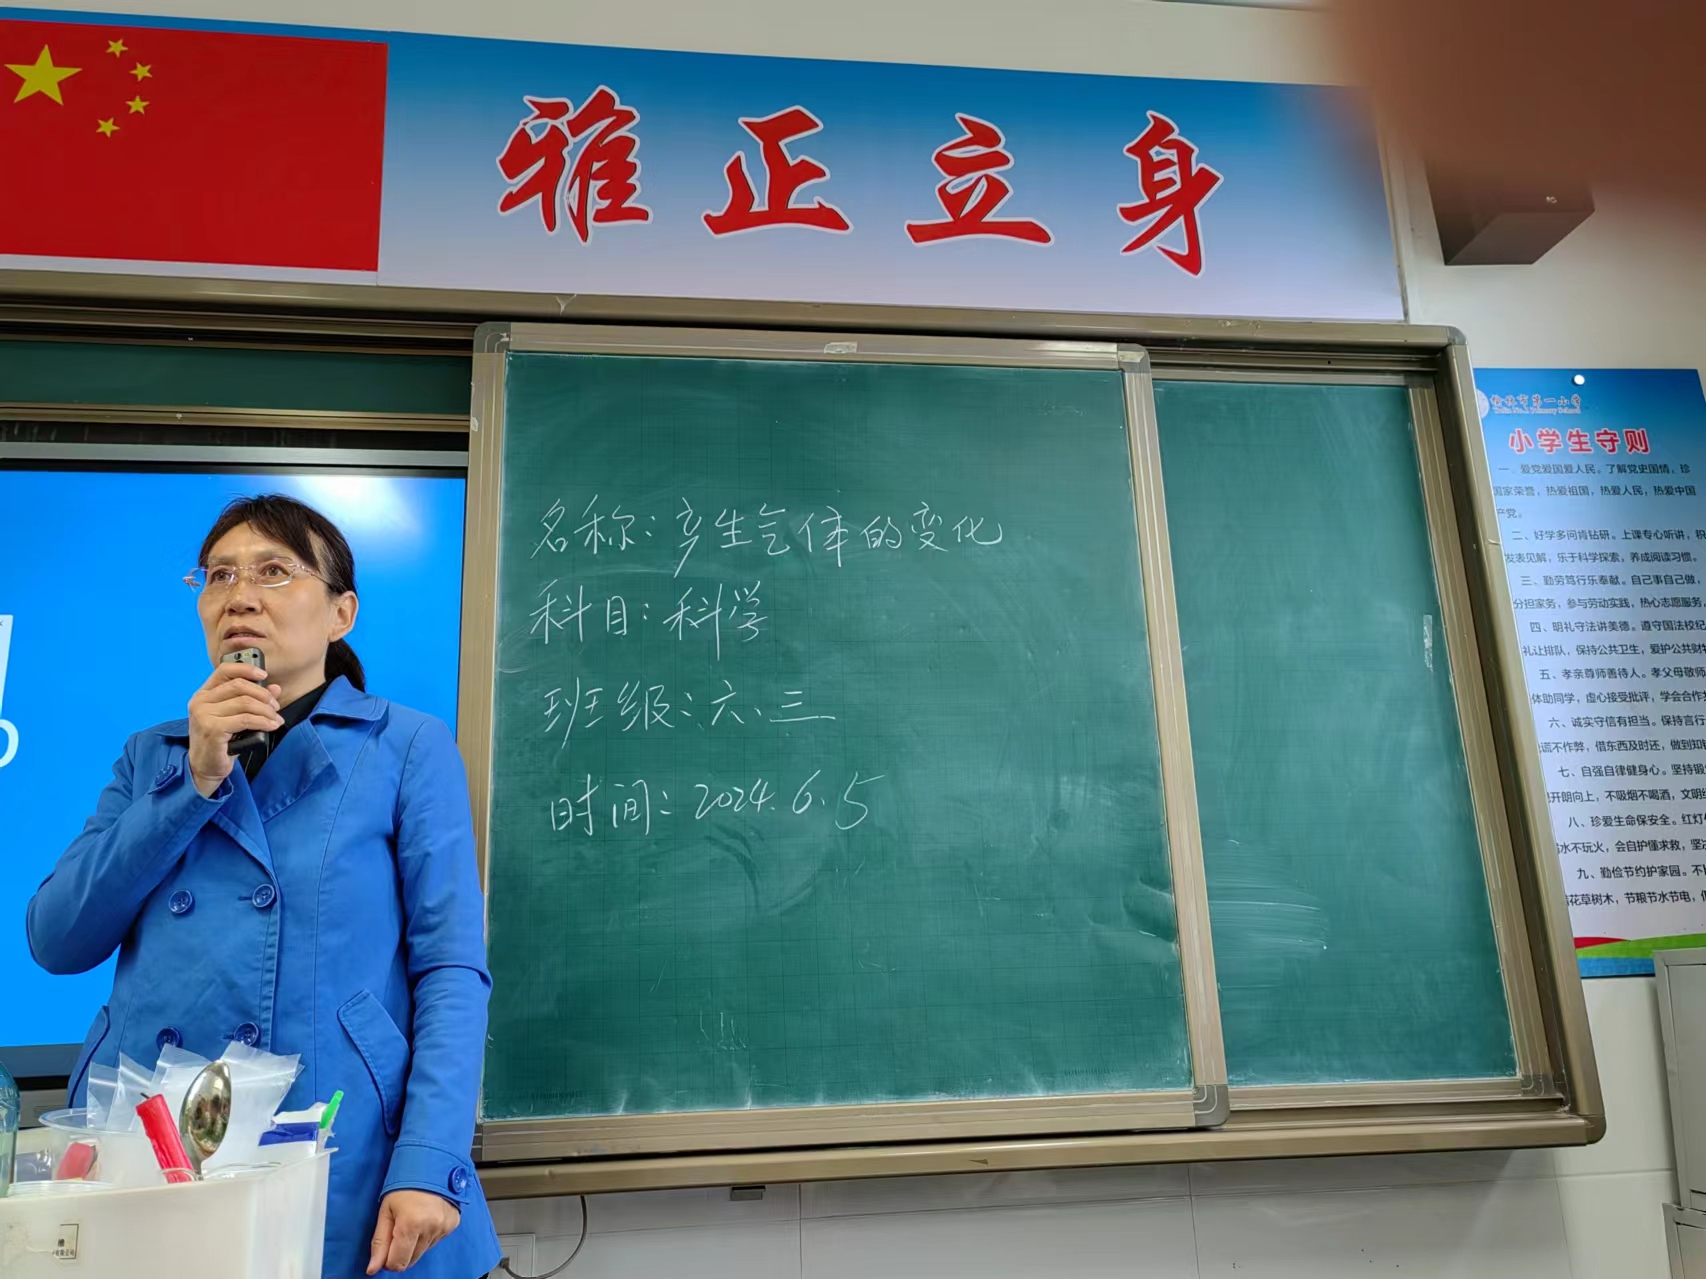 雅正立身
名称:产生气体的变化
科目:科学
班级:六、三
时间:2024.6.5
榆林市第一小学
小学生守则
一、爱党爱国爱人民。了解党史国情，珍
国家荣誉，热爱祖国，热爱人民，热爱中国
产党。
二、好学多问肯钻研。上课专心听讲，积
发表见解，乐于科学探索，养成阅读习惯。
三、勤劳笃行乐奉献。自己事自己做，
分担家务，参与劳动实践，热心志愿服务，
四、明礼守法讲美德。遵守国法校纪
礼让排队，保持公共卫生，爱护公共财物
五、孝亲尊师善待人。孝父母敬师
体助同学，虚心接受批评，学会合作
六、诚实守信有担当。保持言行
谎不作弊，借东西及时还，做到知错
七、自强自律健身心。坚持锻
开朗向上，不吸烟不喝酒，文明
八、珍爱生命保安全。红灯
水不玩火，会自护懂求救，坚
九、勤俭节约护家园。不
花草树木，节粮节水节电，